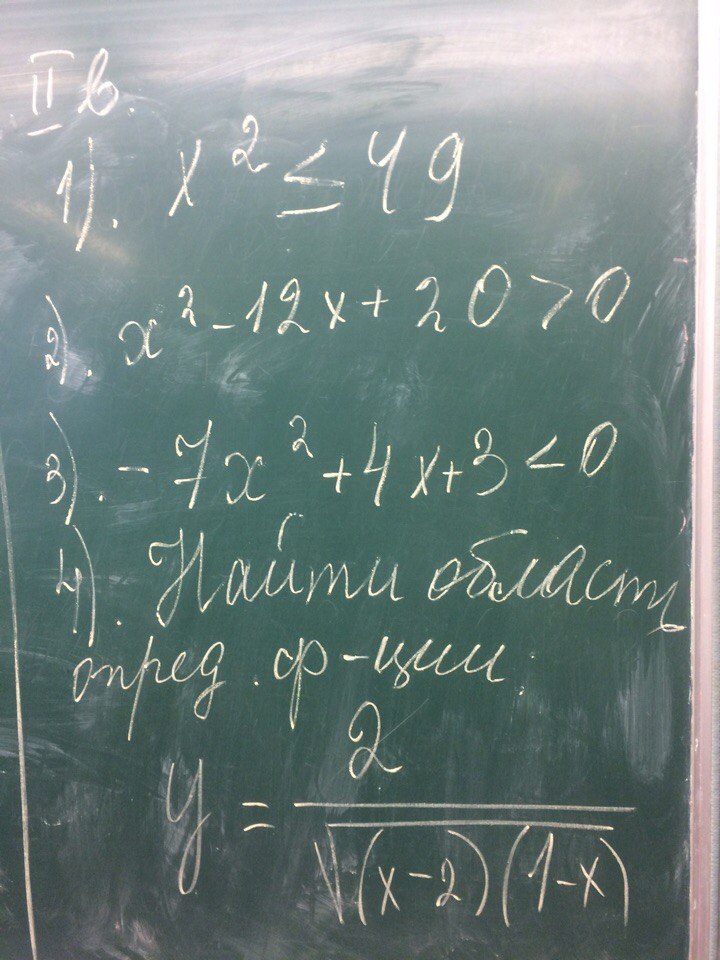 II в.
1). x² ≤ 49
2). x² - 12x + 20 > 0
3). - 7x² + 4x + 3 < 0
4). Найти область
опред. ф-ции.
y = 2 / √(x-2)(1-x)